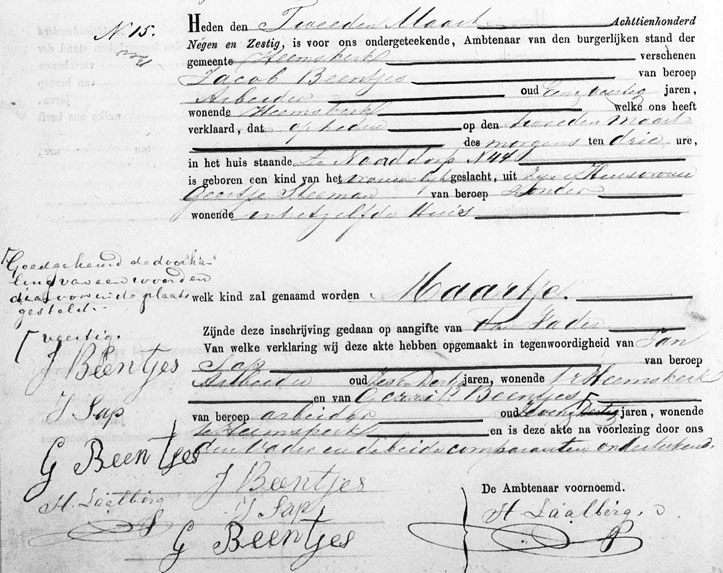 N. 15.
Heden den Tweeden Maart Achttienhonderd
Negen en Zestig, is voor ons ondergeteekende, Ambtenaar van den burgerlijken stand der
gemeente Heemskerk verschenen
Jacob Beentjes van beroep
Arbeider oud jaren,
wonende Heemskerk welke ons heeft
verklaard, dat op heden op den tweeden maart
des morgens ten drie ure,
in het huis staande te Noorddorp N 44
is geboren een kind van het vrouwelijk geslacht, uit zijne Huisvrouw
Geertje Sleeman van beroep zonder
wonende in hetzelfde Huis
welk kind zal genaamd worden Maartje.
Zijnde deze inschrijving gedaan op aangifte van den Vader
Van welke verklaring wij deze akte hebben opgemaakt in tegenwoordigheid van Jan
Sap van beroep
Arbeider oud jaren, wonende te Heemskerk
en van Gerrit Beentjes
van beroep arbeider oud jaren, wonende
te Heemskerk en is deze akte na voorlezing door ons
den Vader en de beide comparanten onderteekend.
Goedgekeurd de doorha-
ling van een woord en
daarvoor in de plaats
gesteld.
veertig.
J Beentjes
J Sap
G Beentjes
H. Laalberg
J Beentjes
J Sap
G Beentjes
De Ambtenaar voornoemd.
H Laalberg